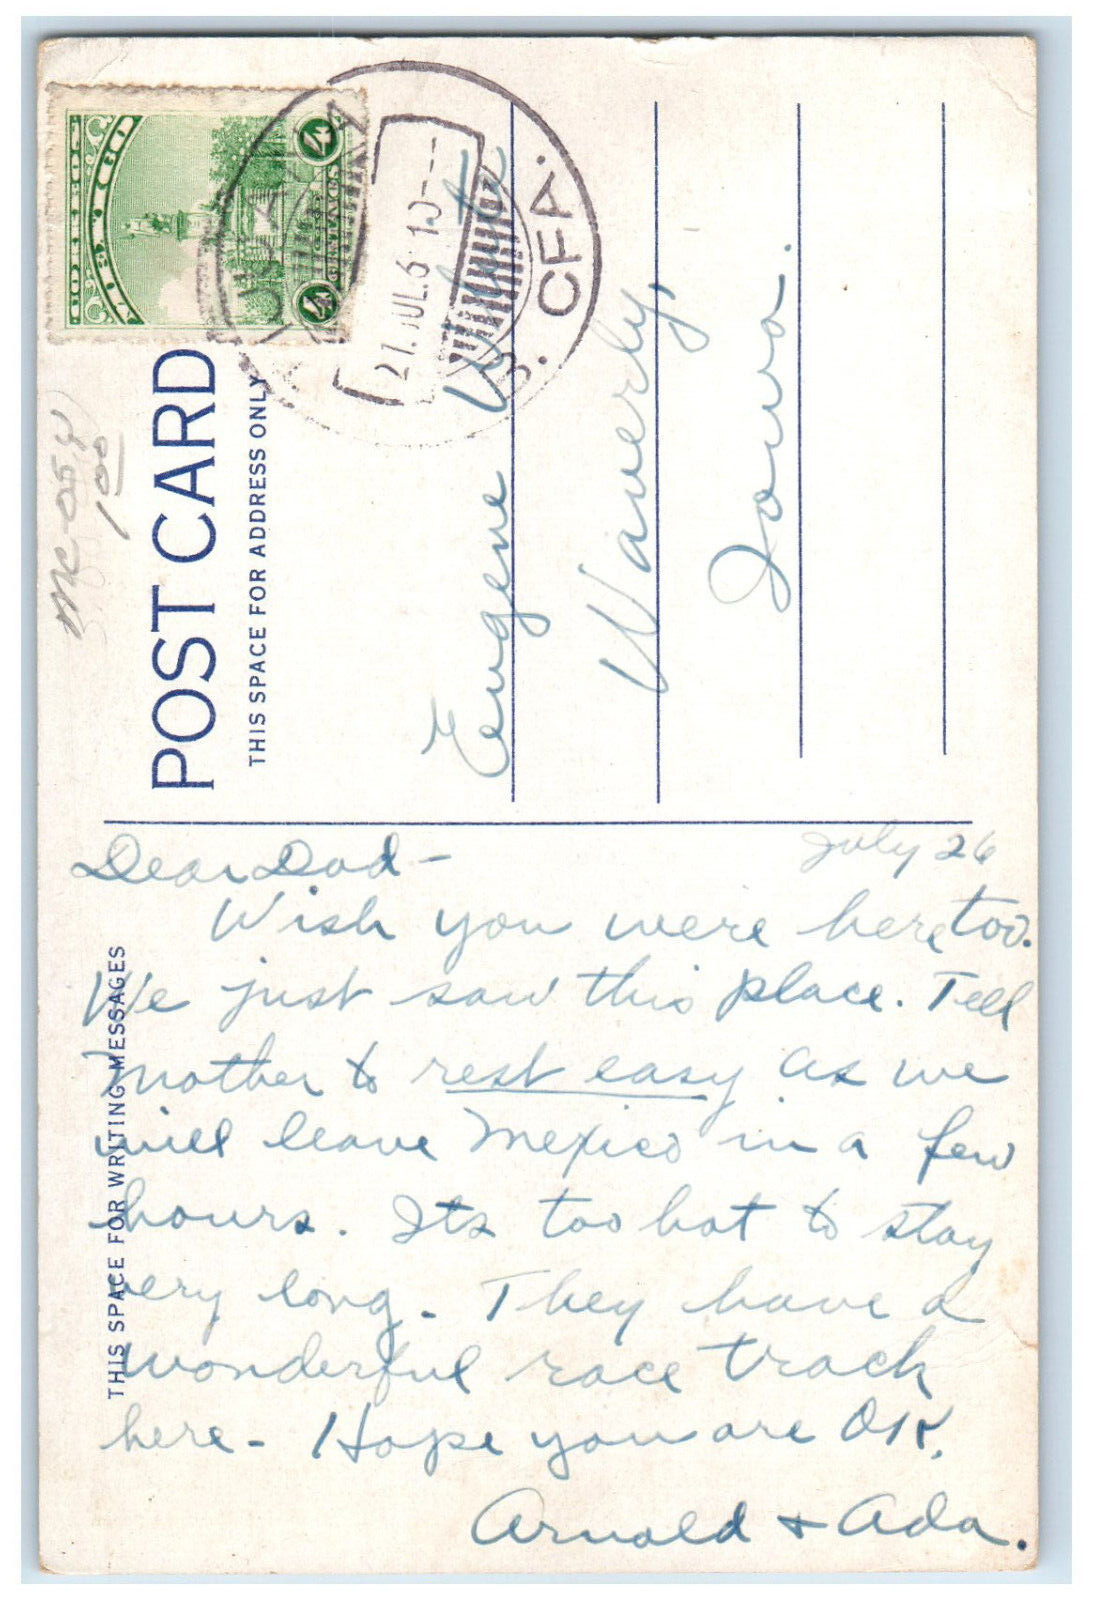 POST CARD
THIS SPACE FOR ADDRESS ONLY
MC-054
1.00
4
4
CENTAVOS
CORREOS
B. CFA.
JUL. 6
Eugene
Waverly,
Iowa.
THIS SPACE FOR WRITING MESSAGES
July 26
Dear Dad -
Wish you were here, too.
We just saw this place. Tell
mother to rest easy as we
will leave Mexico in a few
hours. Its too hot to stay
very long. They have a
wonderful race track
here - Hope you are OK.
Arnold + Ada.